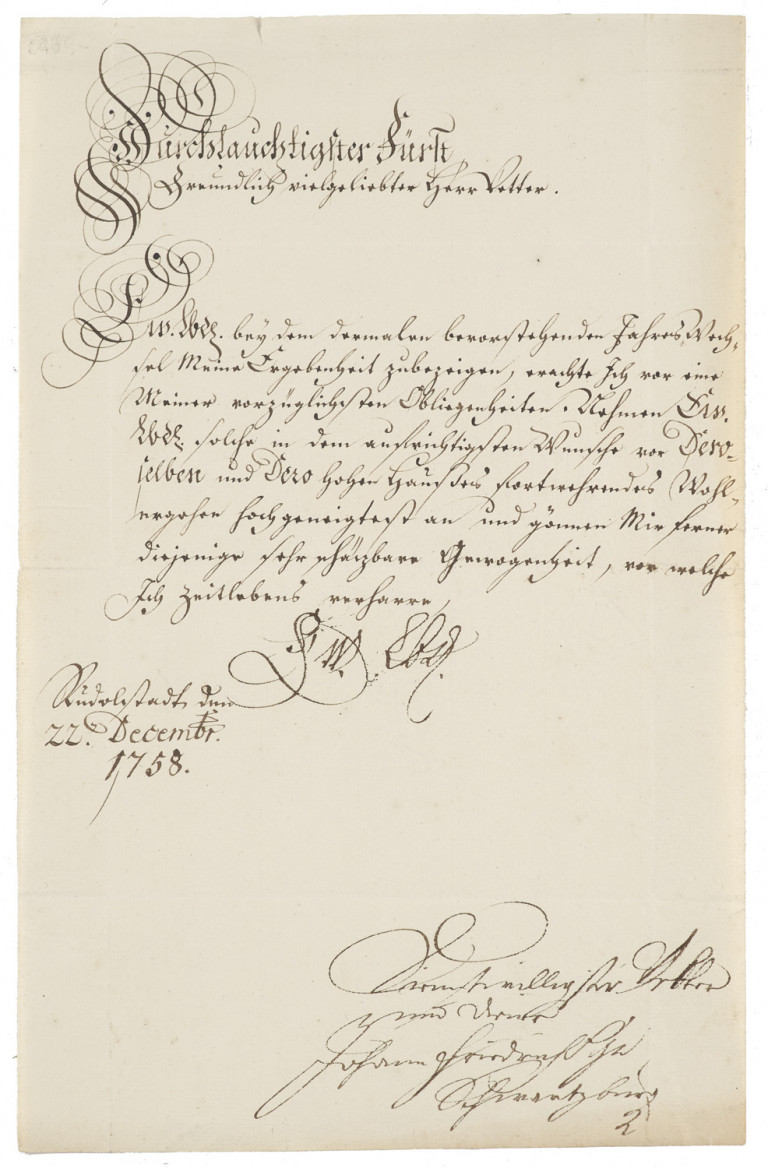 Durchlauchtigster Fürst
Freundlich vielgeliebter Herr Vetter.
Ew. Lbd. bey dem dermalen bevorstehenden Jahres Wech-
sel Meine Ergebenheit zubezeigen, erachte Ich vor eine
Meiner vorzüglichsten Obliegenheiten. Nehmen Ew.
Lbd. solche in dem aufrichtigsten Wunsche vor Dero-
selben und Dero hohen Hauses fortwehrendes Wohl-
ergehen hochgeneigtest an und gönnen Mir ferner
diejenige sehr schäzbare Gewogenheit, vor welche
Ich zeitlebens verharre,
Ew. Lbd.
Rudolstadt, den
22. Decembr.
1758.
Dienstwilligster Vetter
und Diener
Johann Friedrich F z
Schwartzburg